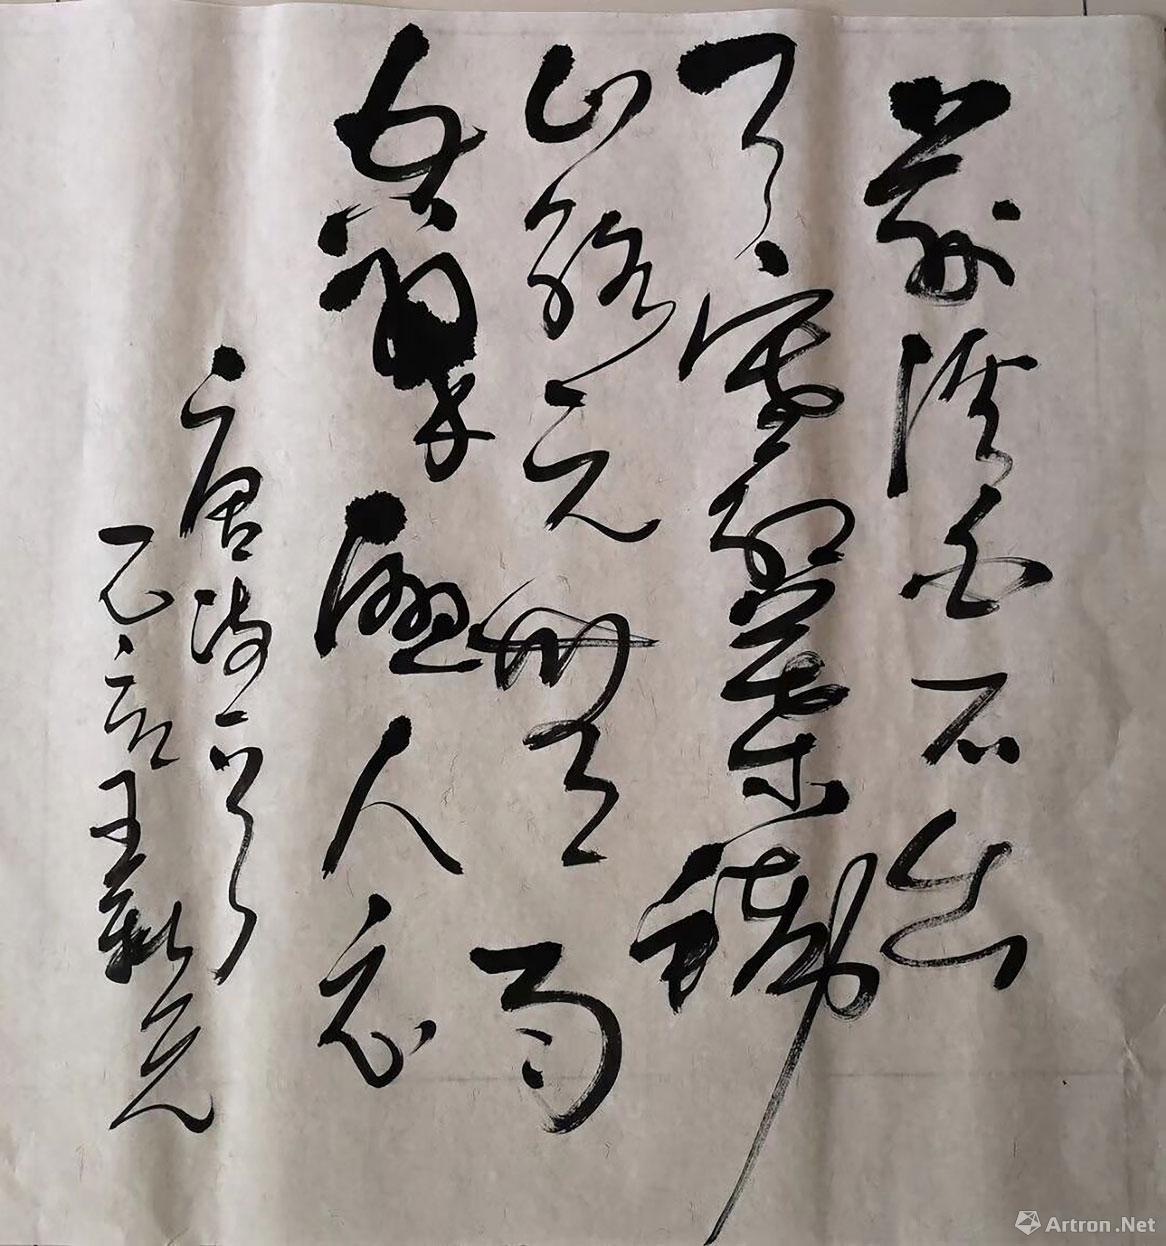 荆溪白石出
天寒红葉稀
山路元無雨
空翠濕人衣
唐诗一首
王新
Artron.Net